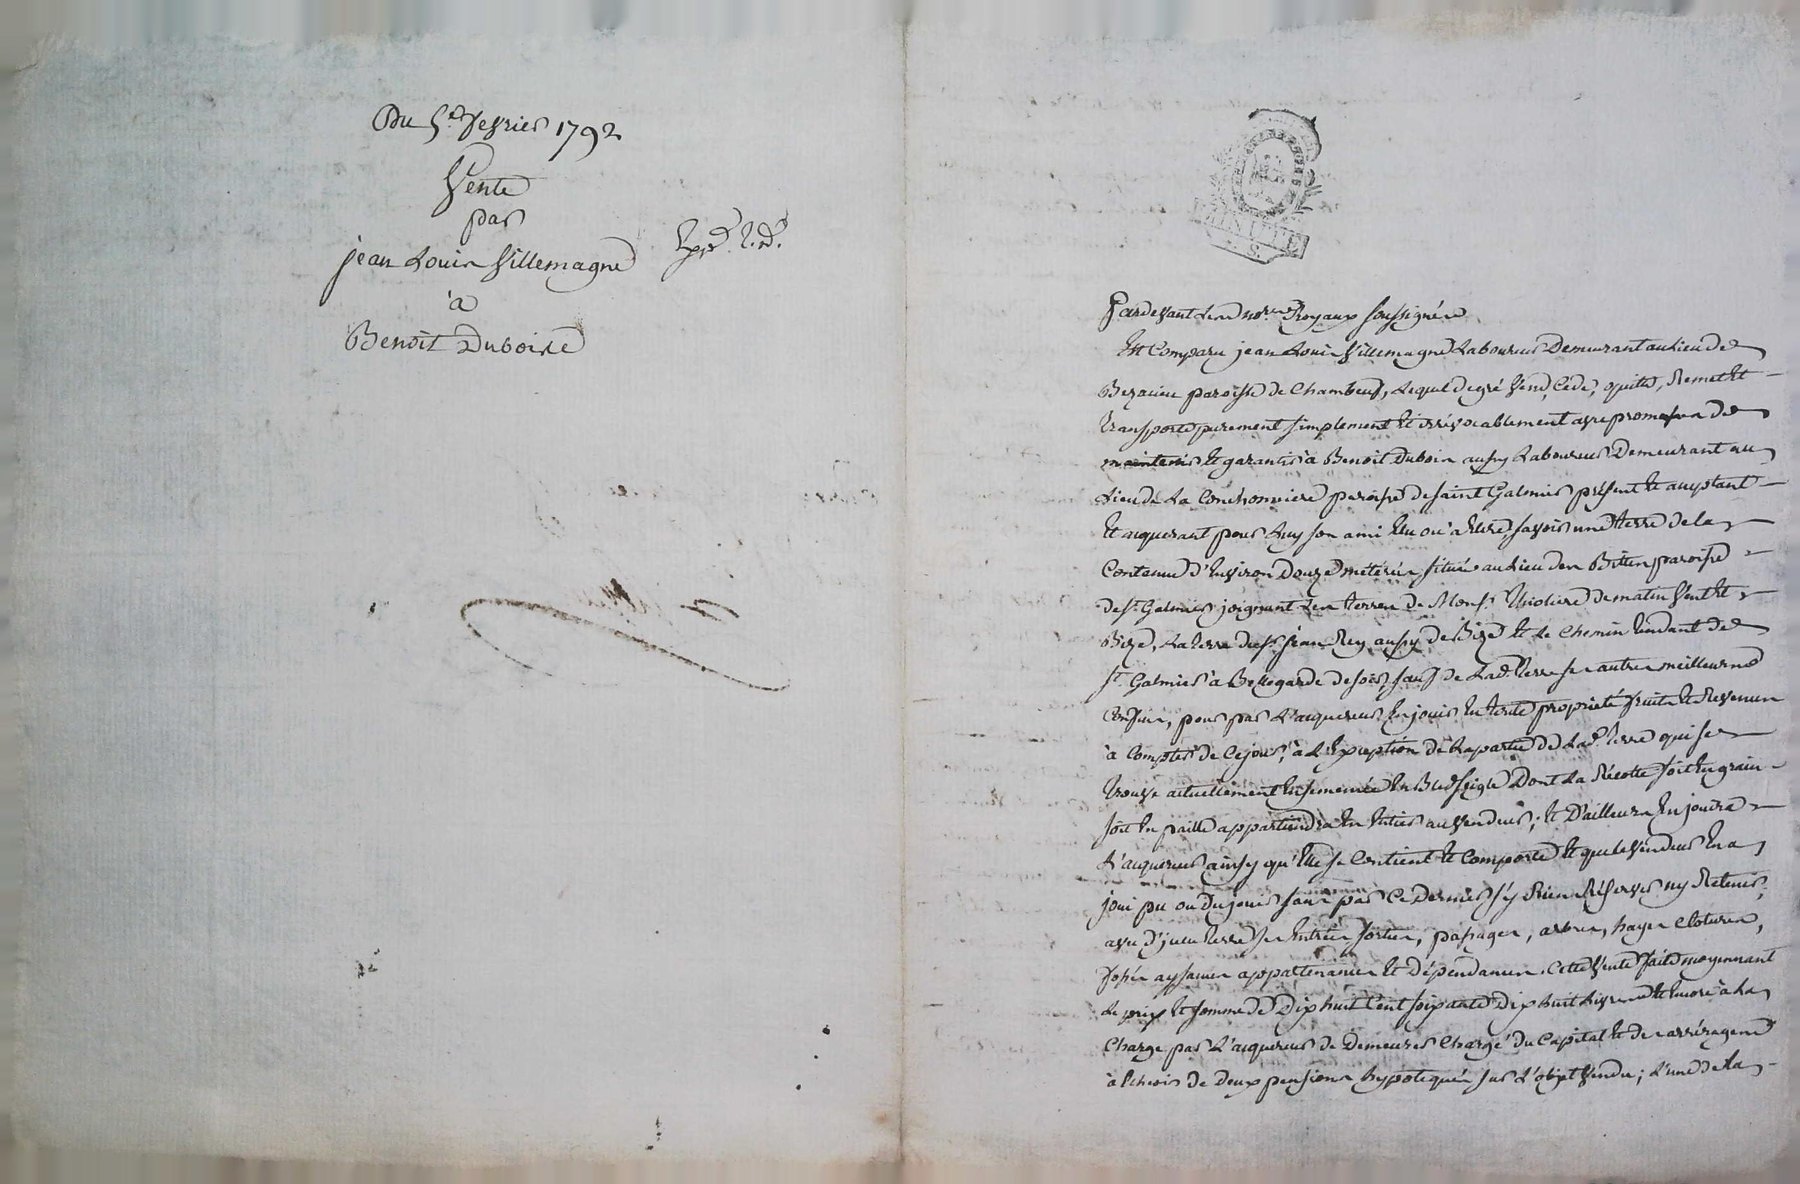 Du 5.e fevrier 1792
Vente
par
jean Louis Villemagne
à
Benoit Duboire
Pardevant Les no.res Royaux soussignés
Est Comparu jean Louis Villemagne Laboureur Demeurant au Lieu de
paroisse de Chambeuf, Lequel de gré Vend, Cede, quitte, Remet Et
transporte purement simplement Et irrévocablement avec promesse de
maintenir Et garantir à Benoit Duboire aussy Laboureur Demeurant au
Lieu de La paroisse de saint Galmier présent Et acceptant
Et acquerant pour Luy son ami Elu ou à Elire, savoir une terre de la
Contenue d'Environ Douze meterées, située au Lieu des paroisse
de st. Galmier, joignant Les terres de Mons.r de matin Vent Et
Bize, La terre du sr. jean Rey aussy de Bize Et Le Chemin tendant de
st. Galmier à Bellegarde de soir, sauf de Lad. terre ses autres meilleurs
Confins, pour par L'acquereur En jouir En toute proprieté fruits Et Revenus
à Compter de Ce jour, à L'Exception de La partie de Lad. terre qui se
trouve actuellement Ensemencée En Bled seigle Dont La Récolte soit En grain
soit En paille appartiendra En Entier au Vendeur; Et D'ailleurs En jouira
L'acquereur ainsy qu'Elle se Contient Et Comporte Et que le Vendeur En a
joui pu ou du jouir sans par Ce Dernier s'y Rien Réserver ny Retenir,
avec d'jcelle terre ses Entrées sorties, passages, arbres, hayes Clotures,
fossés aysances appartenances Et dépendances. Cette Vente faite moyennant
Le prix Et somme de Dix huit Cent soixante Dix huit Livres Et Encore à La
Charge par L'acquereur de Demeurer Chargé du Capital Et des arrérages
à Echeoir de Deux pensions hypotequées sur L'objet Vendu; L'une de La